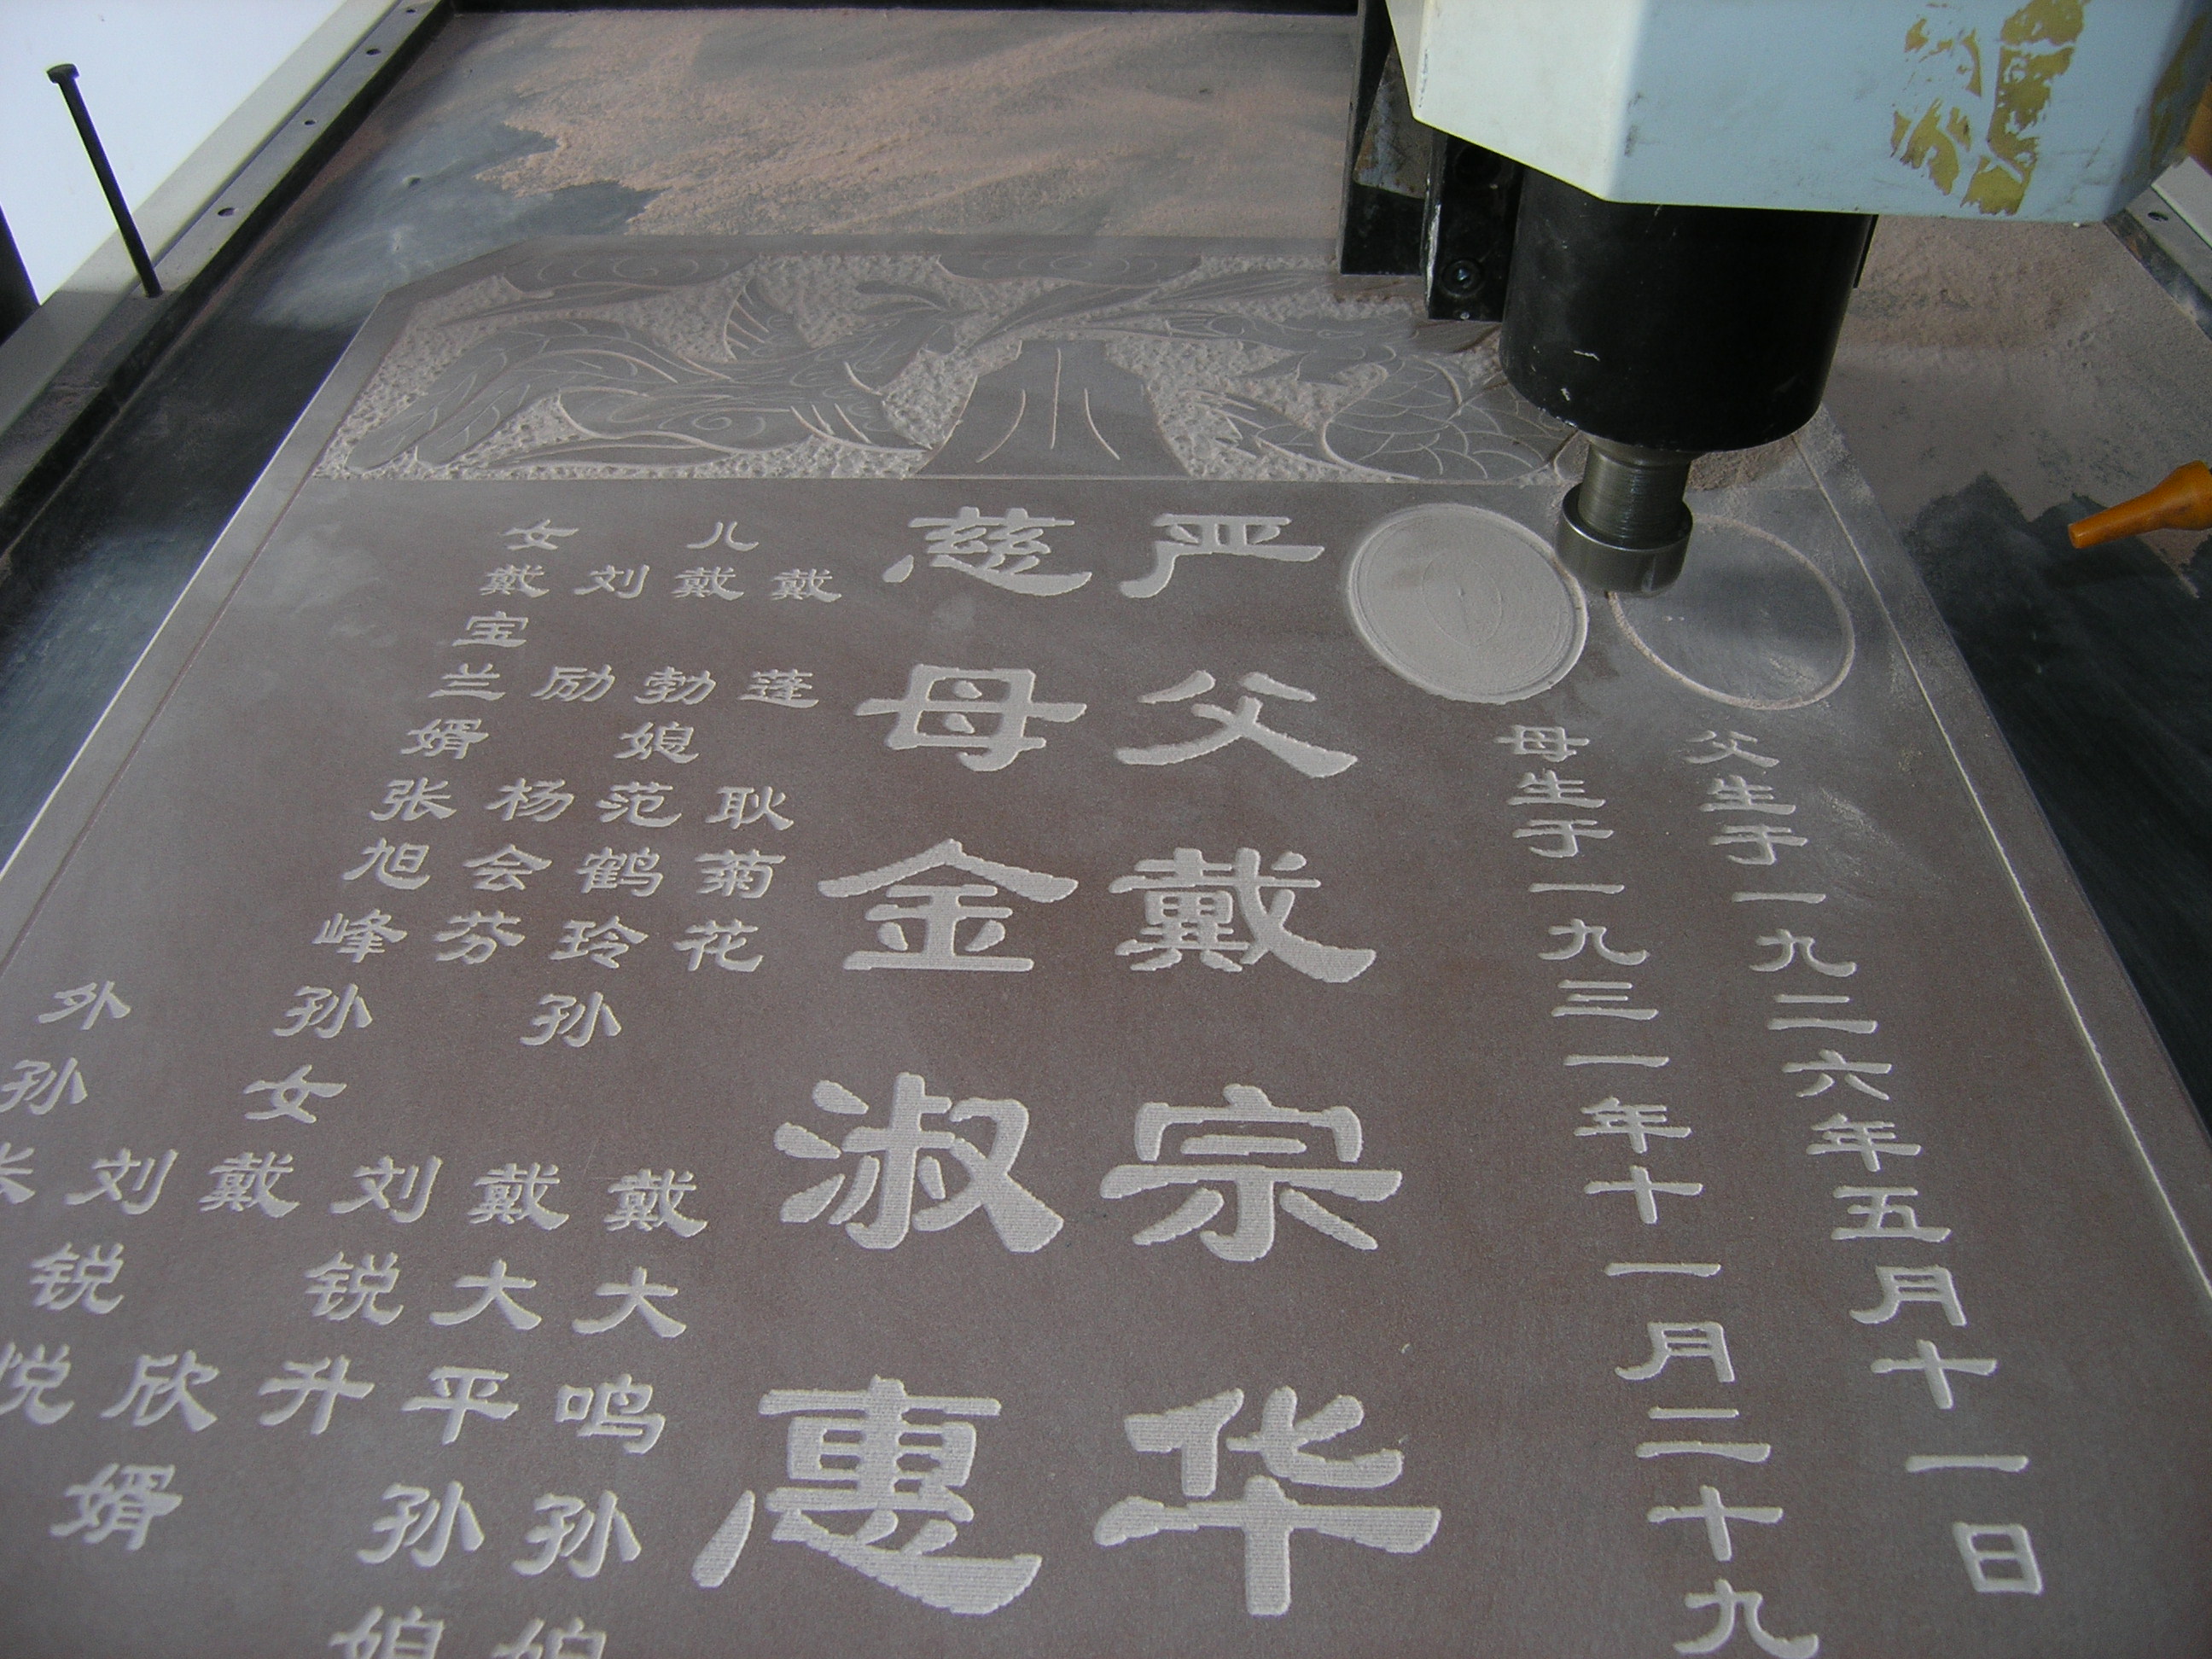 父生于一九二六年五月十一日
母生于一九三一年十一月二十九
严父戴宗华
慈母金淑惠
儿
戴蓬
戴勃
媳
耿菊花
范鹤玲
女
刘励
戴宝兰
婿
杨会芬
张旭峰
孙
戴大鸣
戴大平
刘锐升
孙女
戴欣
刘锐悦
外孙
张
孙媳
孙媳
婿